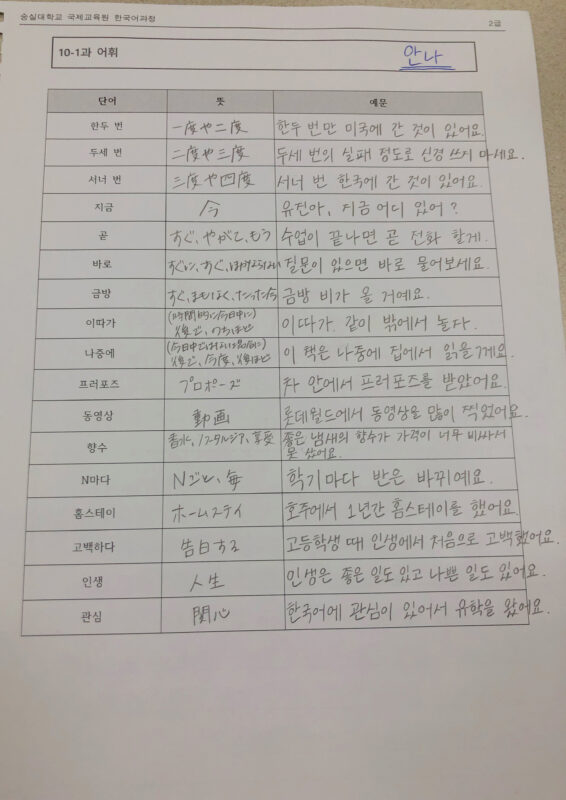 숭실대학교 국제교육원 한국어과정 2급
10-1과 어휘 안나
단어 뜻 예문
한두 번 一度や二度 한두 번만 미국에 간 것이 있어요.
두세 번 二度や三度 두세 번의 실패 정도로 신경 쓰지 마세요.
서너 번 三度や四度 서너 번 한국에 간 것이 있어요.
지금 今 유진아, 지금 어디 있어?
곧 すぐ、やがて、もう 수업이 끝나면 곧 전화 할게.
바로 すぐに、すぐ、 질문이 있으면 바로 물어보세요.
금방 すぐ、まもなく、たった今 금방 비가 올 거예요.
이따가 (時間的に今日中に) 이따가 같이 밖에서 놀자.
後で、のちほど
나중에 (今日中ではない場合に) 이 책은 나중에 집에서 읽을게요.
後で、今度、後ほど
프러포즈 プロポーズ 차 안에서 프러포즈를 받았어요.
동영상 動画 롯데월드에서 동영상을 많이 찍었어요.
향수 香水、ノスタルジア、享受 좋은 냄새의 향수가 가격이 너무 비싸서
못 샀어요.
N마다 Nごと、毎 학기마다 반은 바뀌예요.
홈스테이 ホームステイ 호주에서 1년간 홈스테이를 했어요.
고백하다 告白する 고등학생 때 인생에서 처음으로 고백했어요.
인생 人生 인생은 좋은 일도 있고 나쁜 일도 있어요.
관심 関心 한국어에 관심이 있어서 유학을 왔어요.